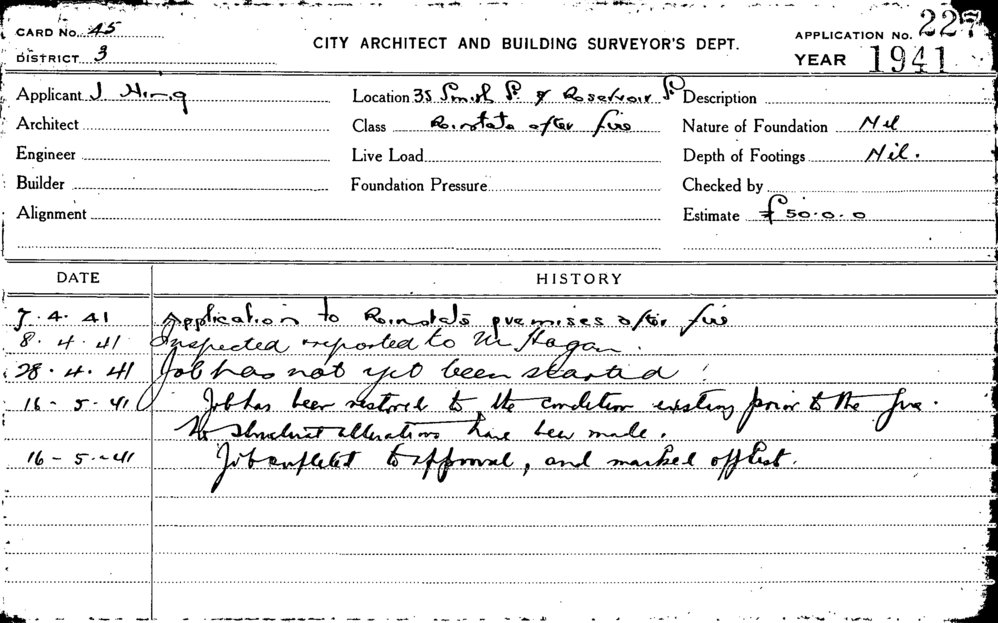 CARD No. 45
DISTRICT 3
CITY ARCHITECT AND BUILDING SURVEYOR'S DEPT.
APPLICATION No. 227
YEAR 1941
Applicant J
Location 35 Smith St. & Reservoir St Description
Architect
Class Reinstate after fire
Nature of Foundation Nil
Engineer
Live Load
Depth of Footings Nil.
Builder
Foundation Pressure
Checked by
Alignment
Estimate £50.0.0
DATE HISTORY
7.4.41 Application to Reinstate premises after fire
8.4.41 Inspected & reported to Mr Hogan.
28.4.41 Job has not yet been started
16-5-41 Job has been restored to the condition existing prior to the fire.
No structural alterations have been made.
16-5-41 Job completed to approval, and marked off list.